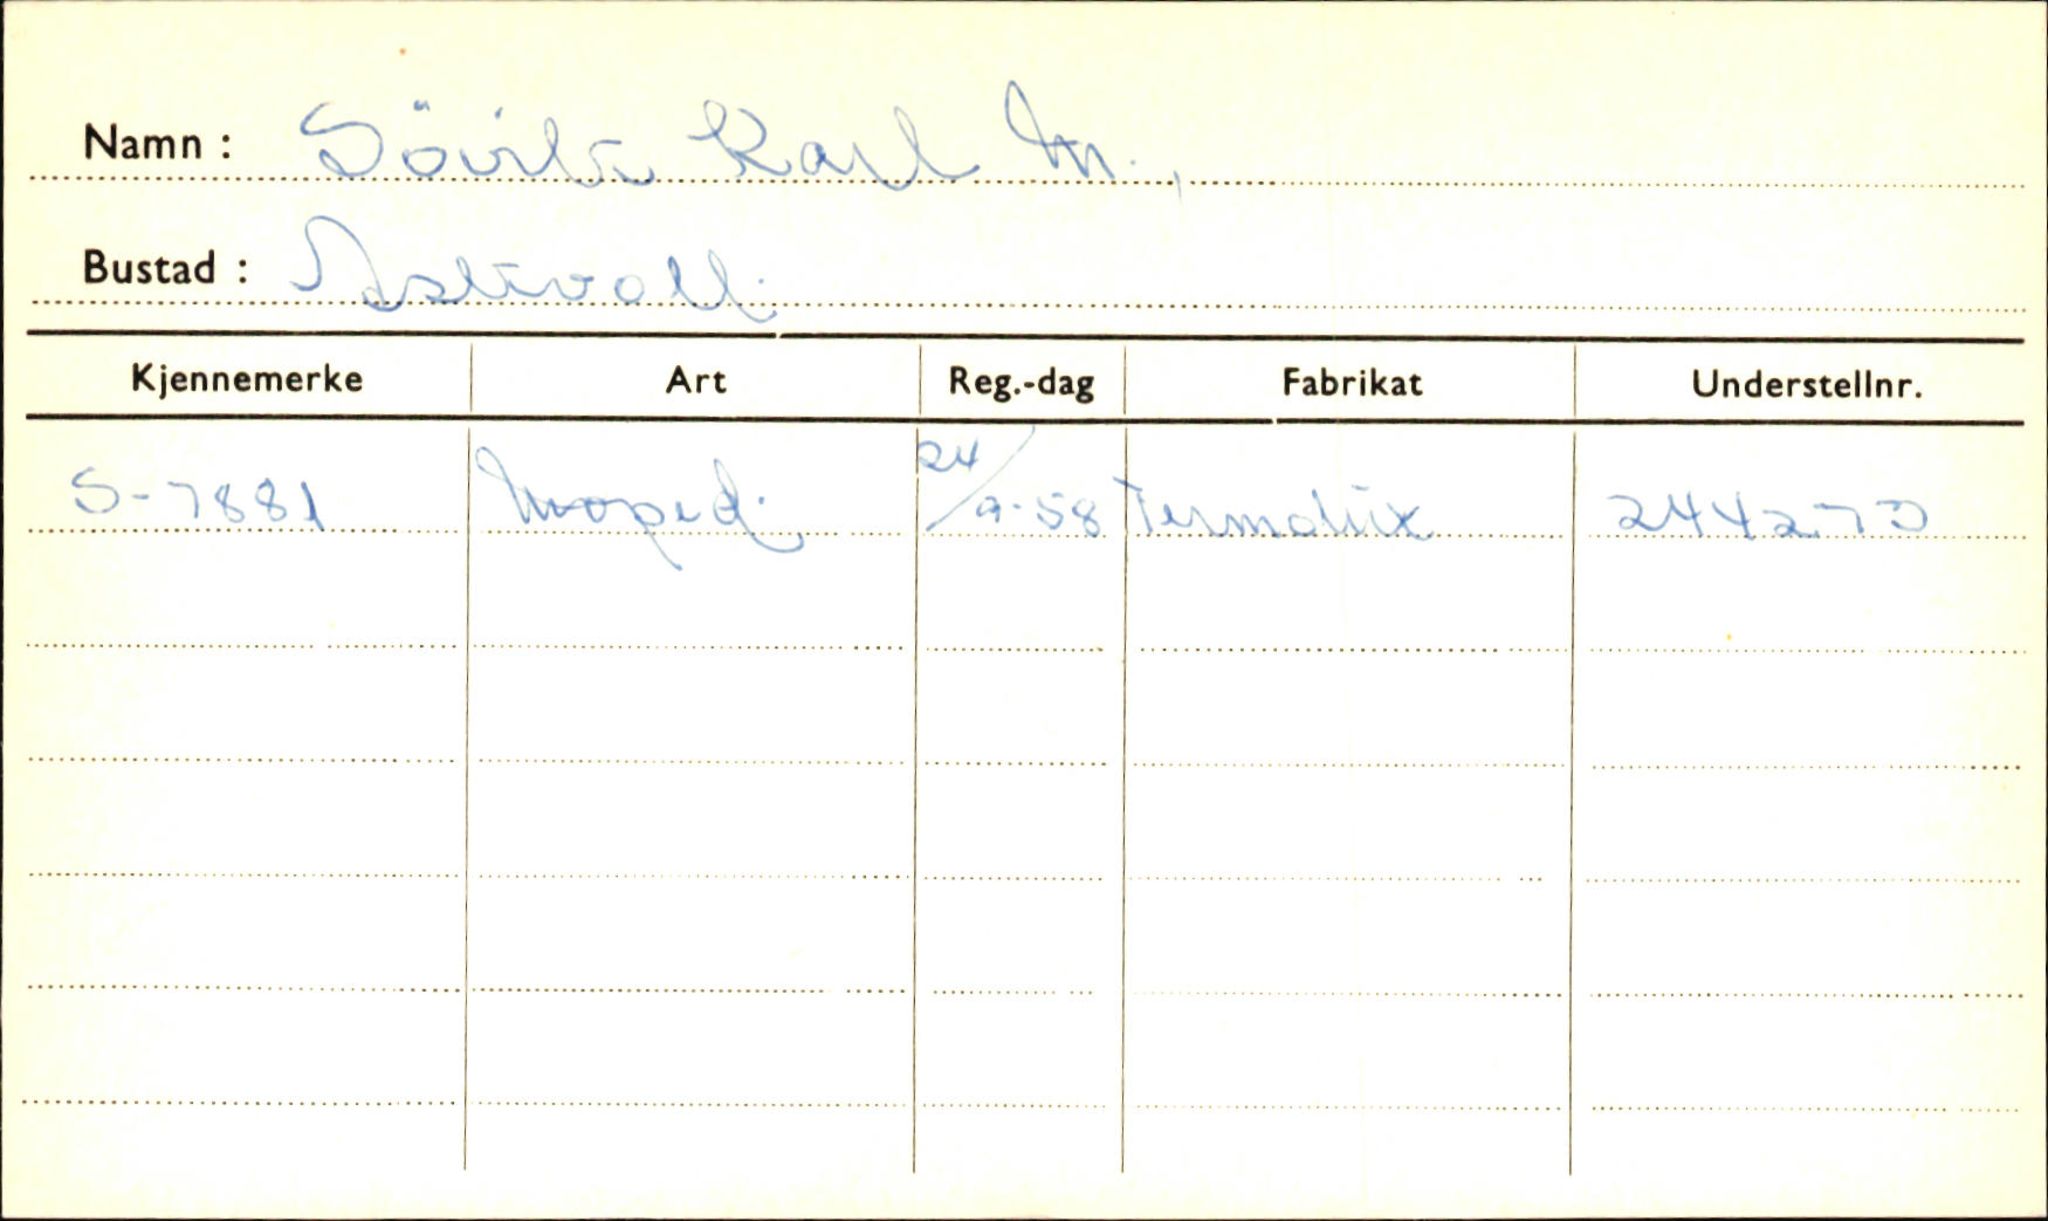 Namn : Sövik Karl M.,
Bustad : Astivoll.
Kjennemerke Art Reg.-dag Fabrikat Understellnr.
S-7881 Moped. 24/9-58 Termolux 244273